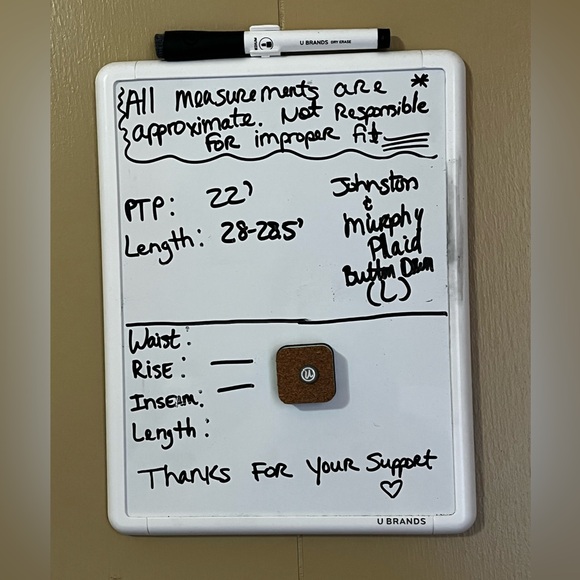 U BRANDS DRY ERASE
All measurements are *
approximate. Not Responsible
For improper fit
PTP: 22'
Length: 28-28.5'
Johnston
&
Murphy
Plaid
Button Down
(L)
Waist:
Rise:
Inseam:
Length:
Thanks For Your Support
U BRANDS